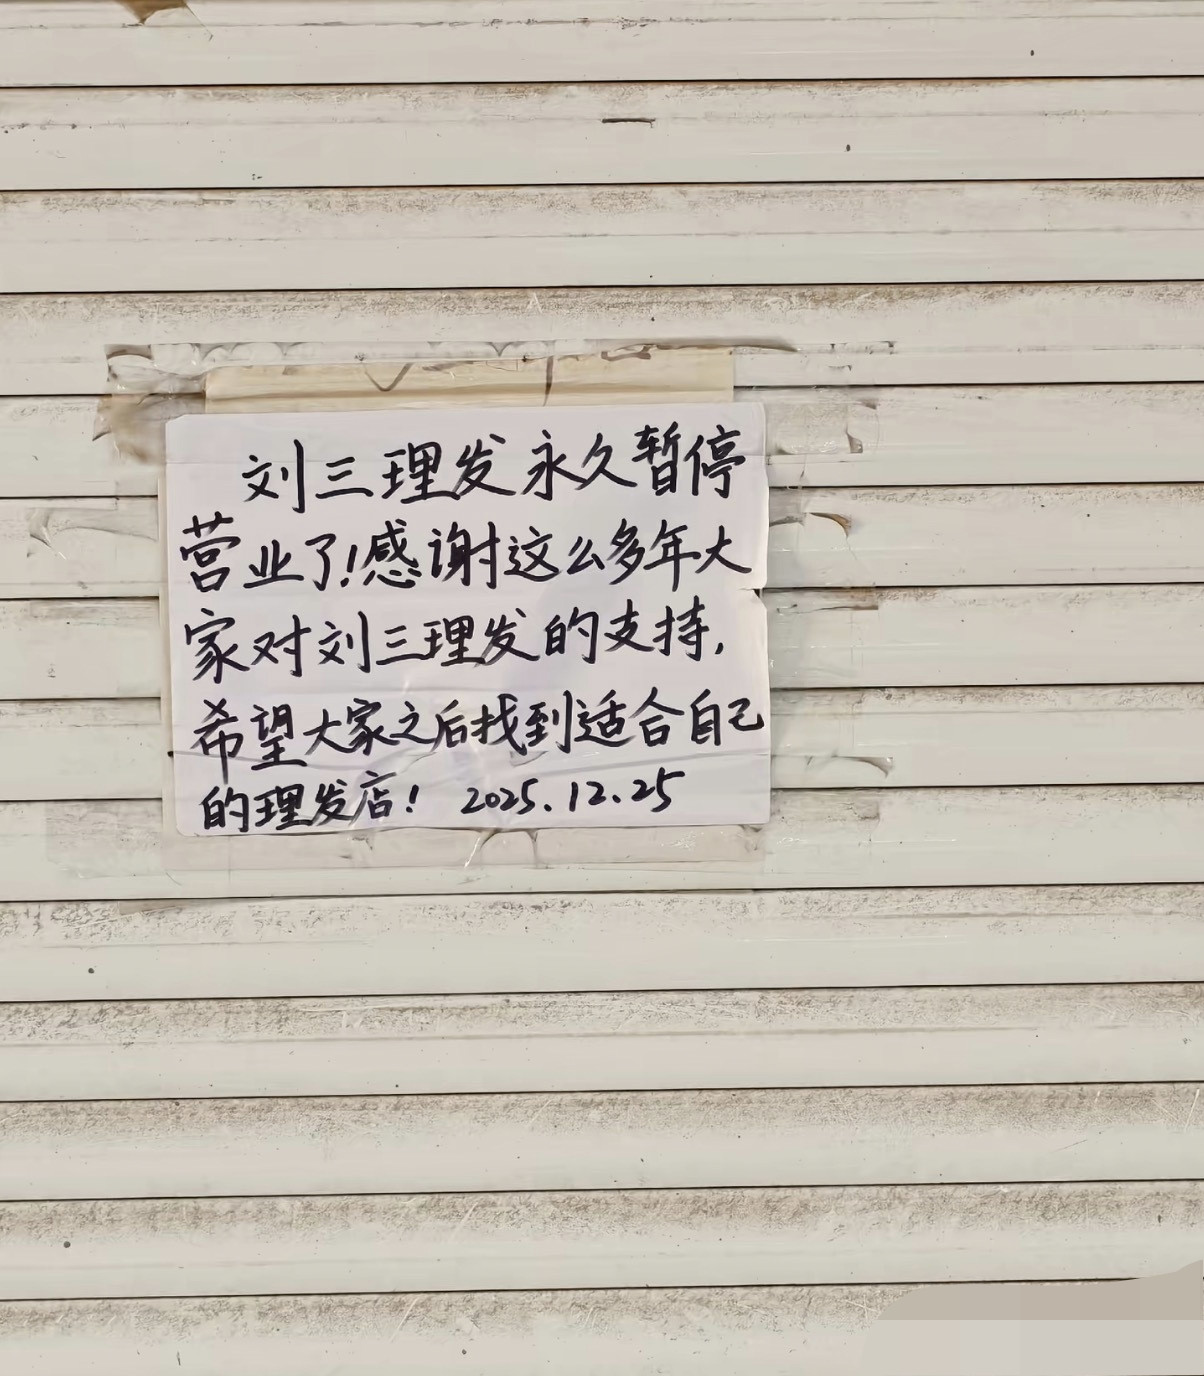 刘三理发永久暂停
营业了!感谢这么多年大
家对刘三理发的支持,
希望大家之后找到适合自己
的理发店! 2025.12.25